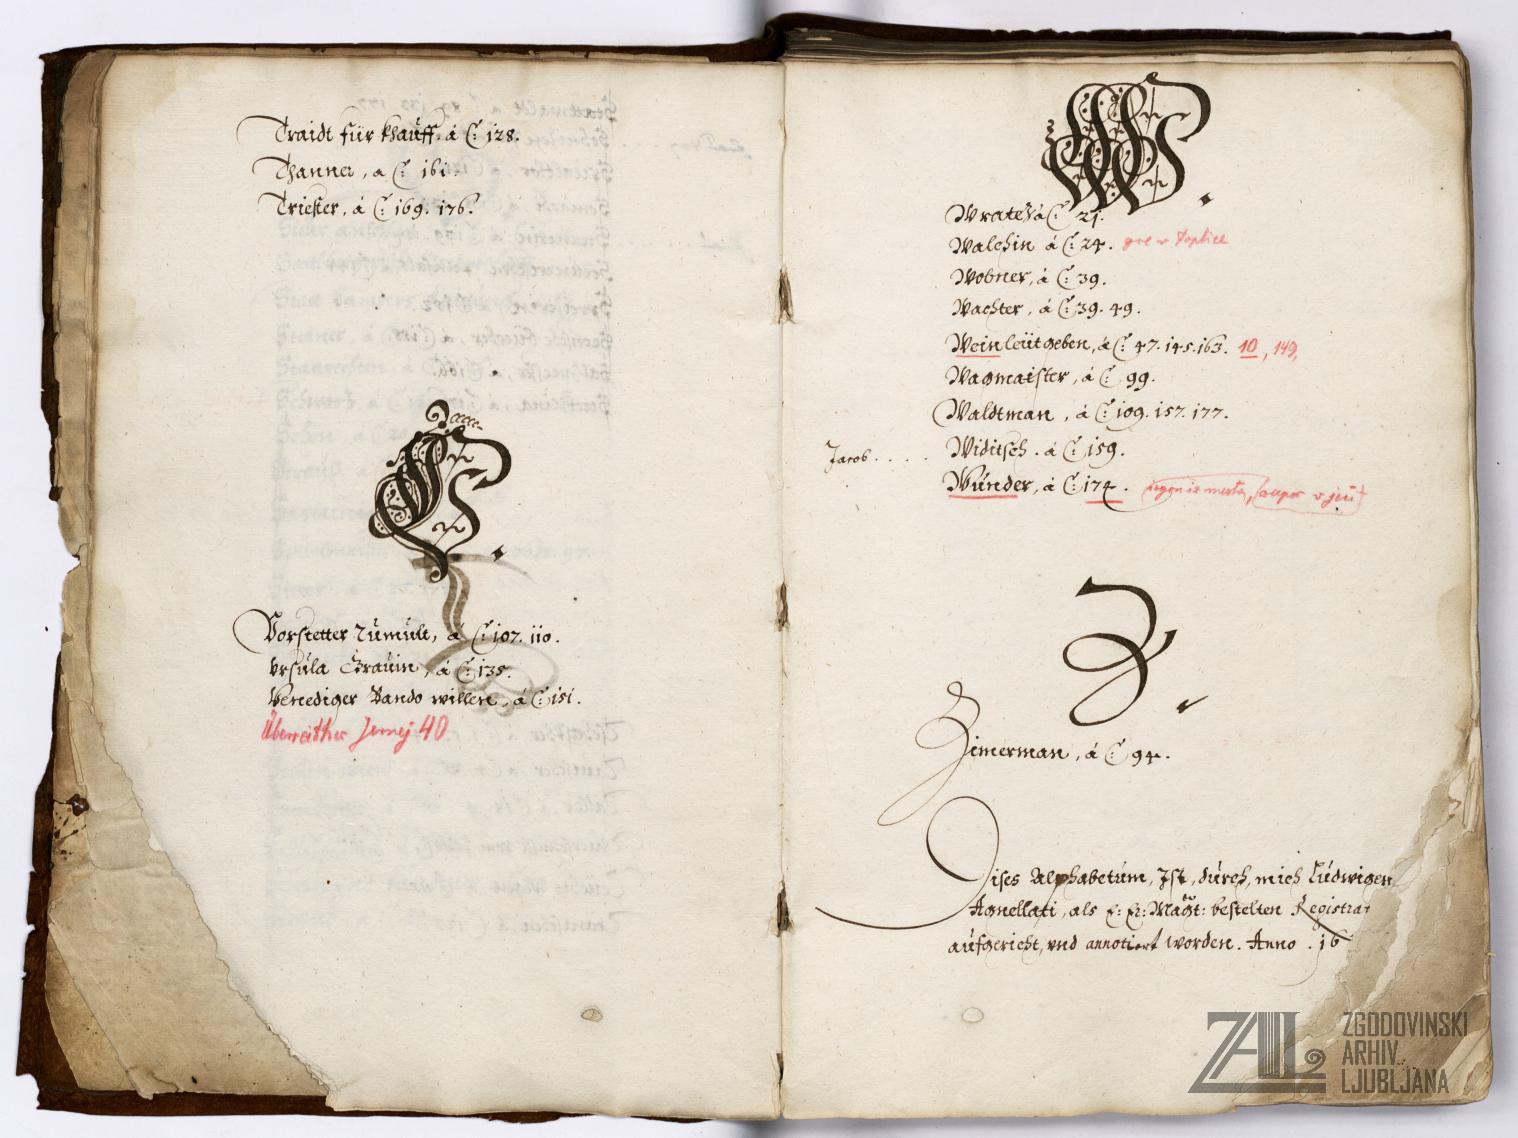 Traidt für khauff. á C: 128.
Thanner, a C: 161.
Triester, á C: 169. 176.
V.
Vorstetter Tumult, á C: 107. 110.
Vrsula Grauin, á C: 135.
Venediger Bando willen, á C: 151.
Jernej 40
W.
á C: 21.
Walchin á C: 24. gre v Toplice
Wobner, á C: 39.
Wachter, á C: 39. 49.
Weinleütgeben, á C: 47. 145. 163. 10, 149,
Wagmaister, á C: 99.
Waldtman, á C: 109. 157. 177.
Jacob.... Widitsch. á C: 159.
Wunder, á C: 174.
Z.
Zimerman, á C: 94.
Dises Alphabetum, Ist, durch, mich Ludwigen
Agnellati, als E: Er: Magt: bestelten Registra
aufgericht, vnd annotiert worden. Anno. 16
ZAL
ZGODOVINSKI
ARHIV
LJUBLJANA